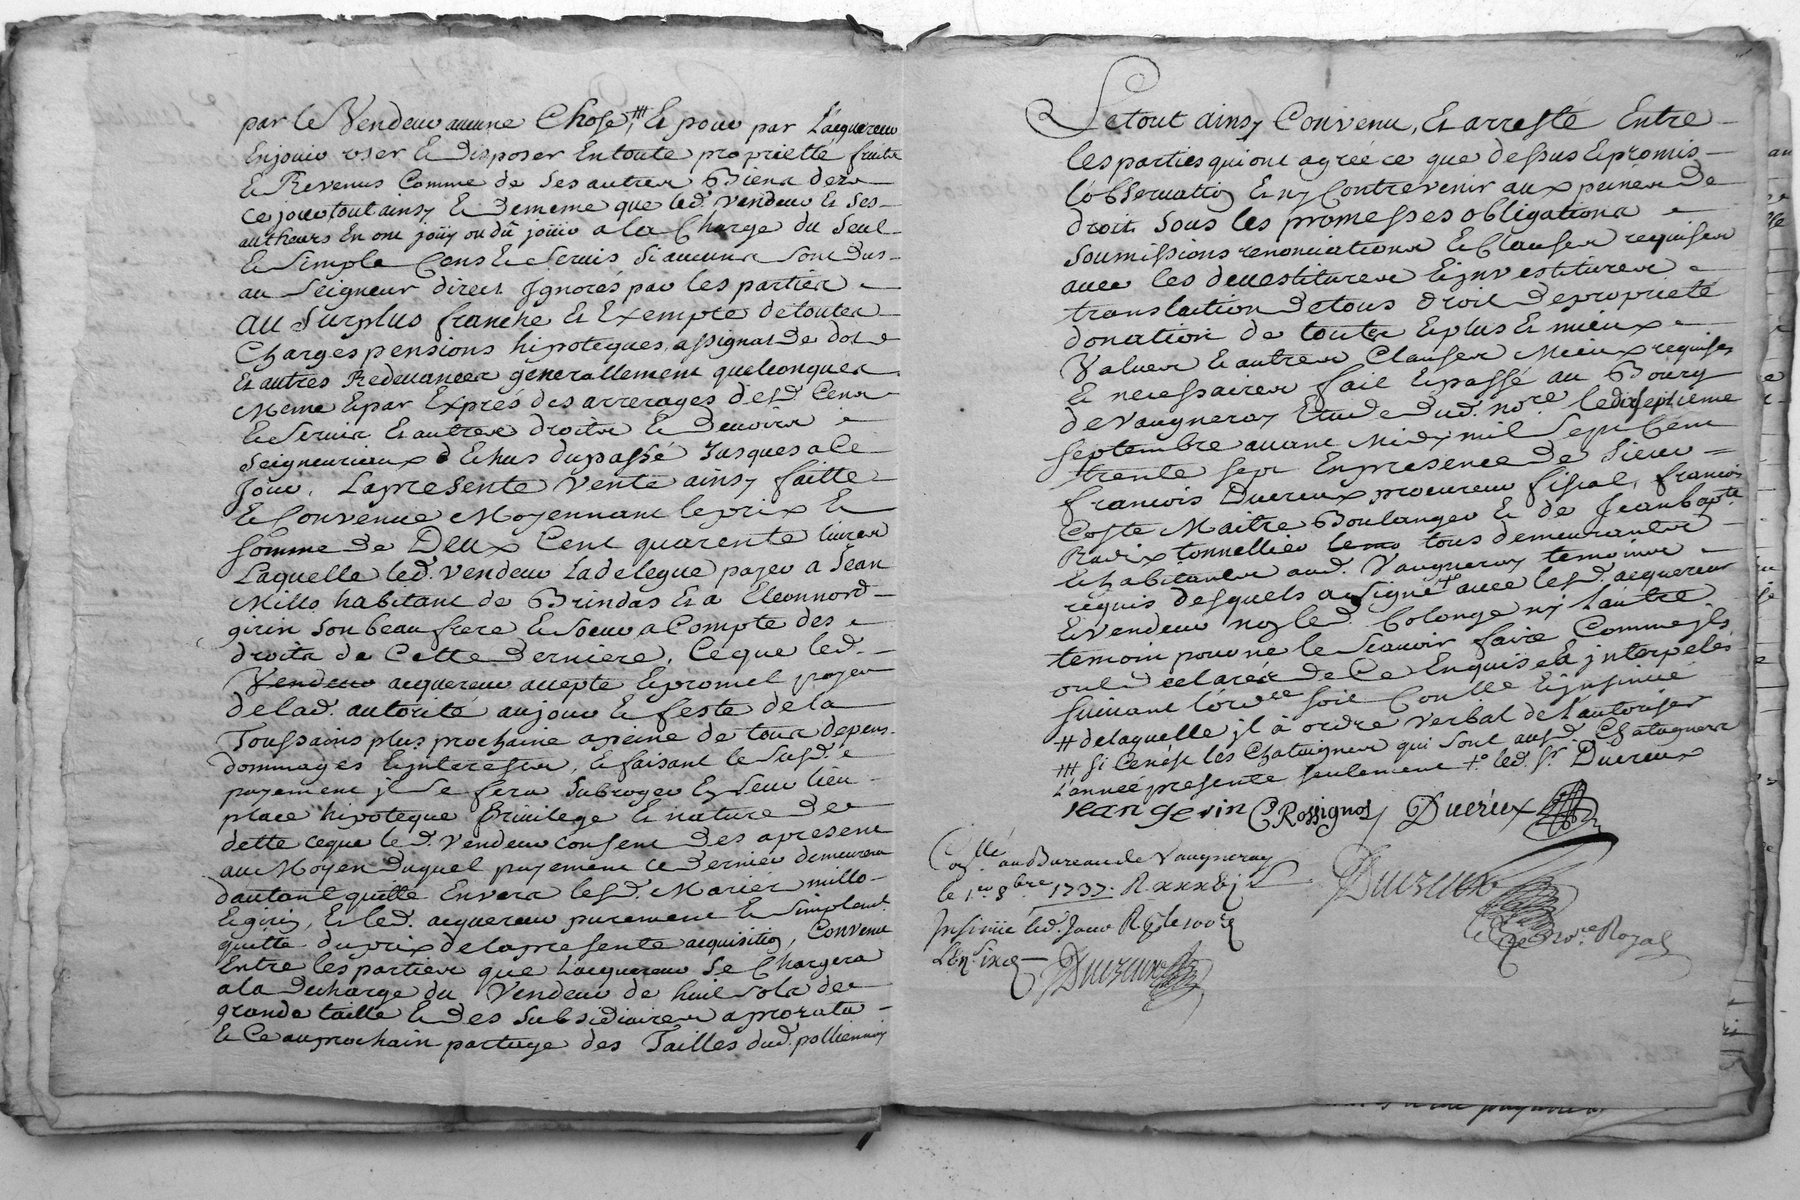 par le Vendeur aucune Chose ; # Et pour par Lacquereur
Enjouir user Et Disposer Entoute proprietté fruits
Et Revenus Comme de Ses autres Biens dez
ce jour tout ainsy Et Dememe que led. Vendeur Et Ses
autheurs En ont joüy ou dû joüir a la Charge du Seul
Et Simple Cens Et Servis Si aucuns Sont Dus
au Seigneur direct Ignorés par les parties
au Surplus franche Et Exempte detoutes
Charges pensions hipoteques, assignat De dot
Et autres Redevances generallement quelconques
Meme Et par Exprés des arrerages desd. Cens
Et Servis Et autres droits Et Devoirs
Seigneuriaux Echus dupassé Jusques a Ce
Jour. Lapresente Vente ainsy faitte
Et Convenue Moyennant leprix Et
Somme De Deux Cent quarente livres
Laquelle led. Vendeur La delegue payer a Jean
Millo habitant de Brindas Et a Eleonnord
girin Son beau frere Et Soeur a Compte des
droits de Cette Derniere, Ceque led.
Vendeur acquereur accepte Et promet payer
delad. autorité aujour Et feste dela
Toussains plus prochaine apeine de tous depens
dommages Et interests, Et faisant le Susd.
payement jl Se fera Subroger En Leur lieu
place hipoteque Privilege Et nature de
dette ceque led. Vendeur consent Des apresent
au Moyen Duquel payement ce Dernier demeurera
dautant quitte Envers lesd. Mariés millo
Et girin, Et led. acquereur purement Et Simplemt.
quitte duprix delapresente acquisition, Convenu
Entre les parties que Lacquereur Se Chargera
a la Decharge du Vendeur de huit Sols de
grande taille Et Des Subsidiaires aprorata
Et Ce auprochain partage des Tailles dud. pollionnay
Letout ainsy Convenu, Et arresté Entre
les parties qui ont agrée ce que dessus Et promis
lobservation Et ny Contrevenir aux peines De
droit Sous les promesses obligations
Soumissions renonciations Et Clauses requises
avec les devestitures Et jnvestitures
translaition Detous droit Depropriété
donation de toutte Et plus Et mieux
Values Et autres Clauses Mieux requises
Et necessaires fait Et passé au Bourg
de Vaugneray Etude Dud. nore. le dixseptieme
Septembre avant Midy mil Sept Cent
trente Sept En presence De Sieur
francois Ducreux procureur fiscal, francois
Coste Maitre Boulanger Et de Jean bapte.
Radix tonnellier tous demeurants
Et habitants aud. Vaugneray temoins
requis Desquels a Signé + avec lesd. acquereur
Et vendeur non led. Colonge ny Lautre
temoin pour ne le Scavoir faire Comme jls
ont Declarés De Ce Enquis et jnterpelés
Suivant lordce Soit Conlle Et jnsinué
# delaquelle jl à ordre verbal de Lautoriser
# Si Cenést les Chataignes qui Sont ausd. Chatagners
Lannée presente Seulement + led. Sr. Ducreux
jean gerin C Rossignol Ducreux
Conllé au Bureau de Vaugneray
le 1er 8bre 1737. R
Ducreux
Insinué led. Jour
Nore. Royal
Ducreux